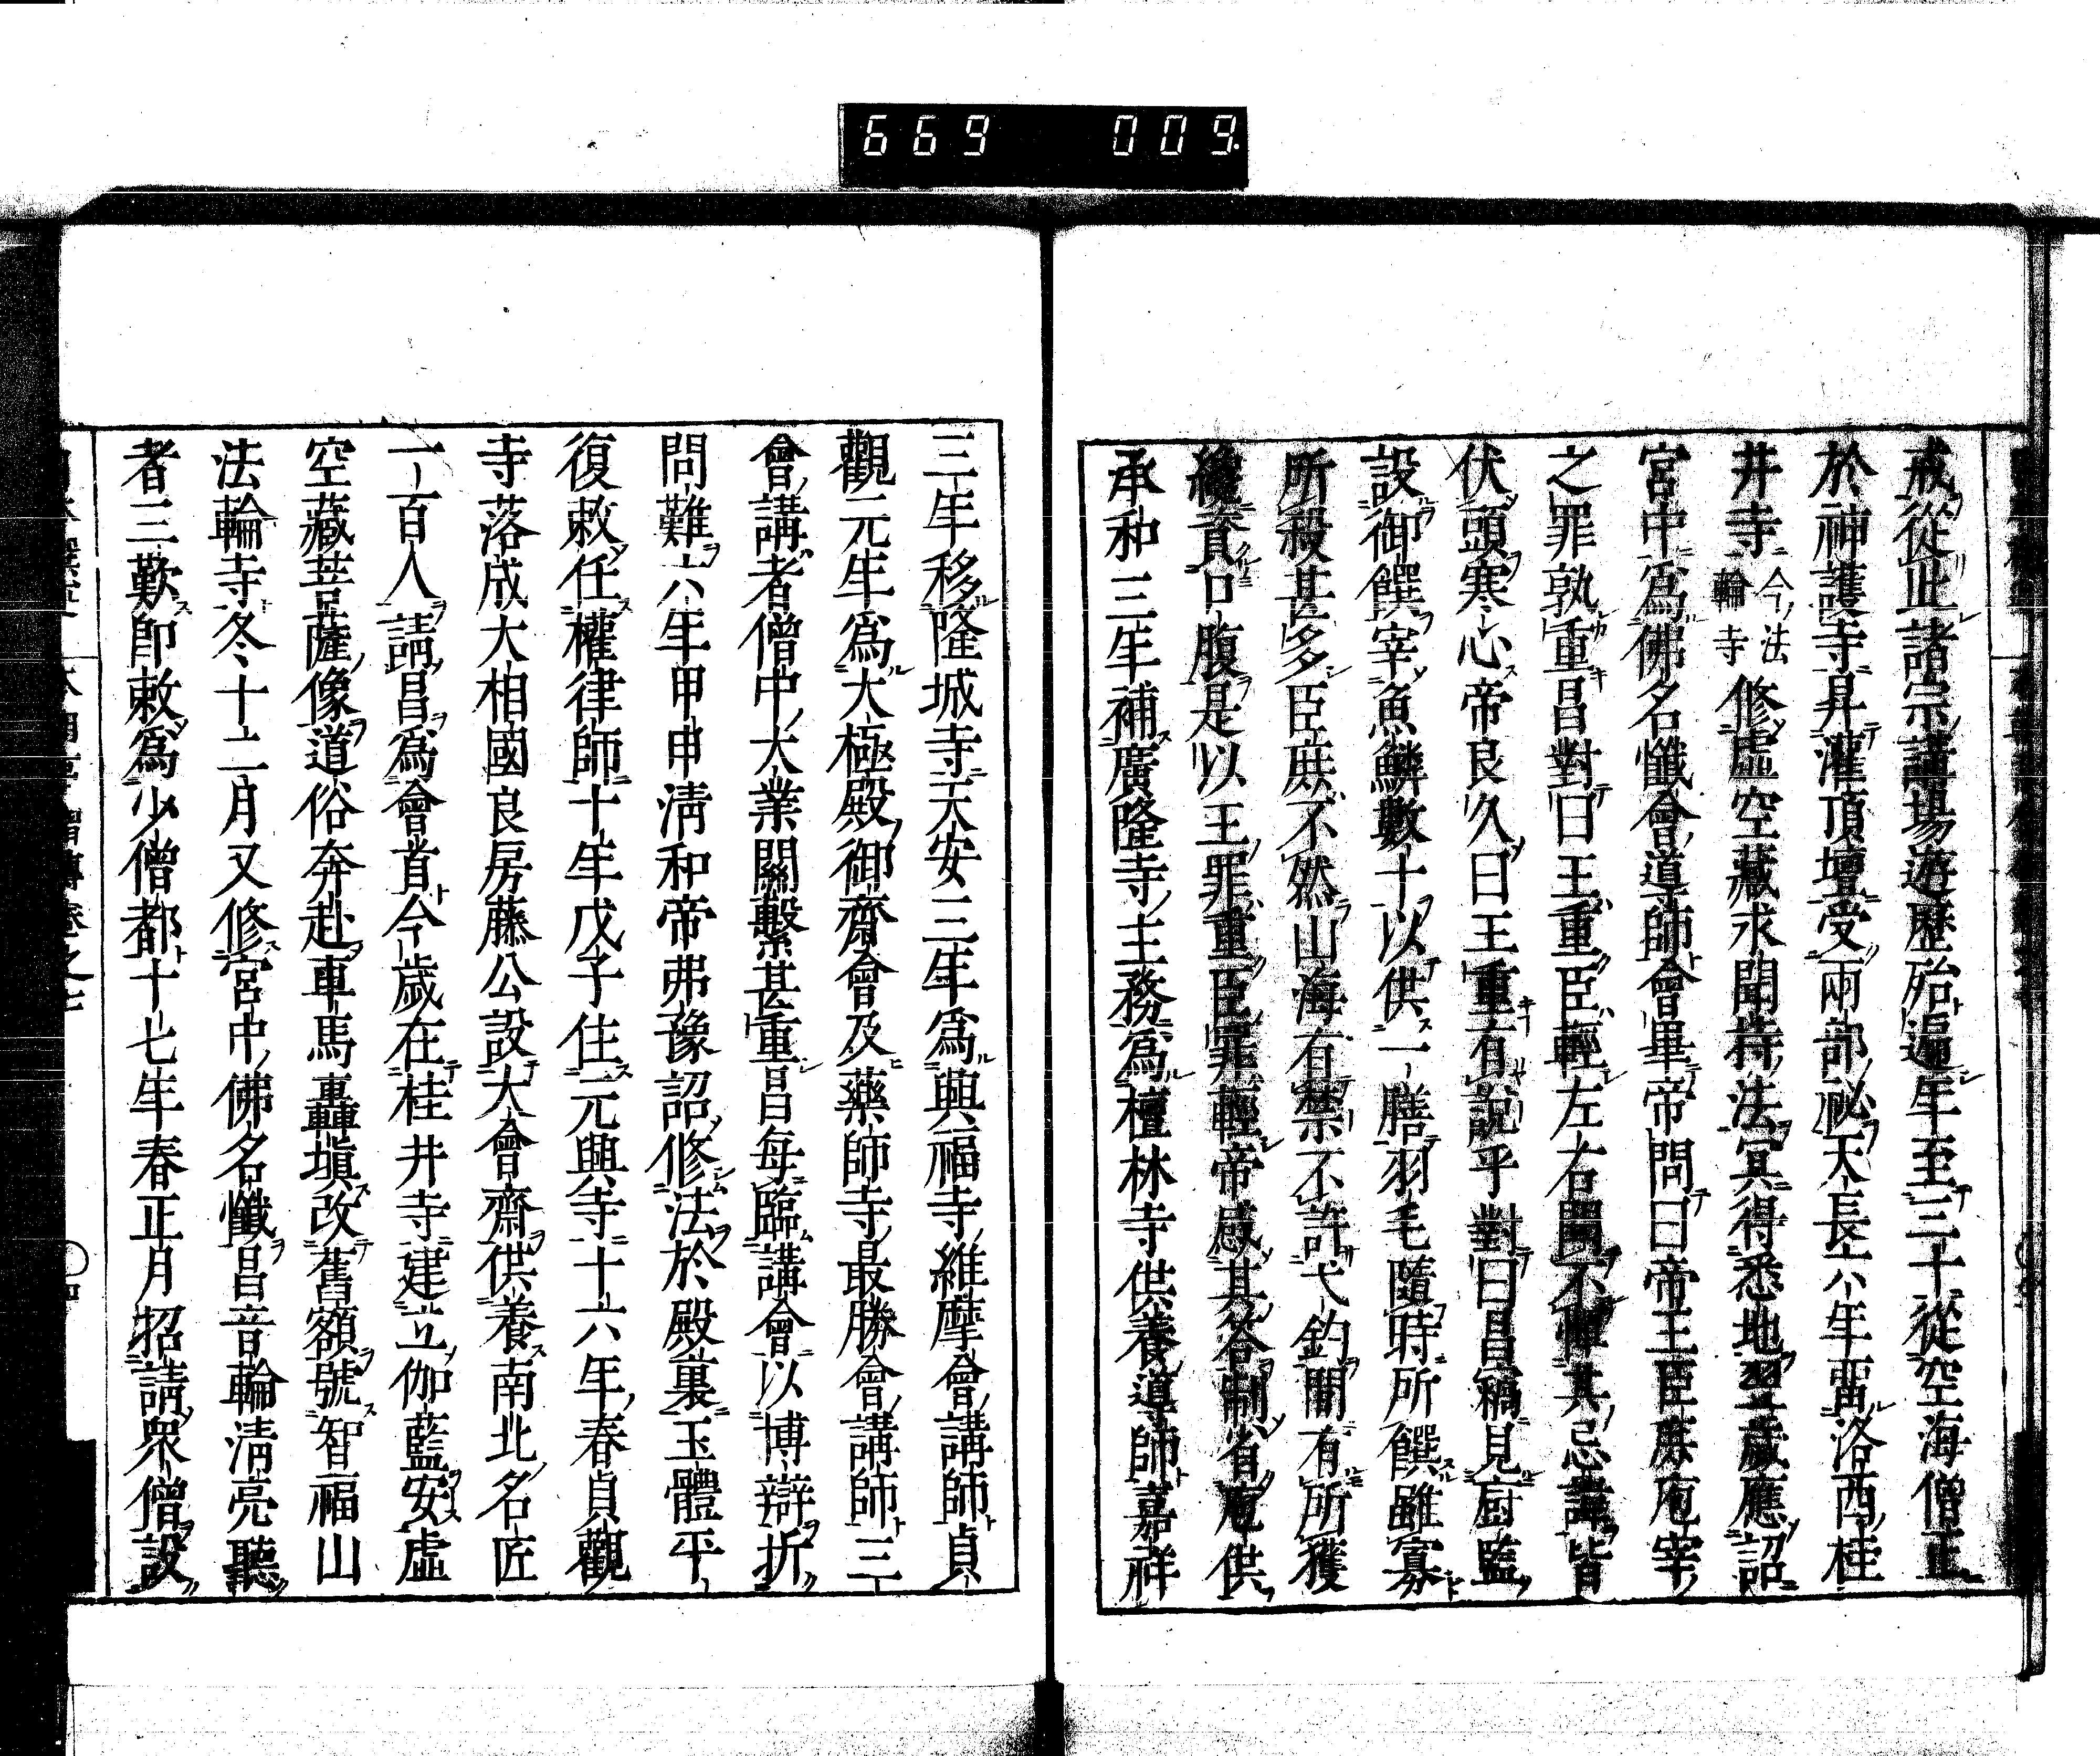 669 009.
戒從此諸宗講場遊歷殆遍年至三十從空海僧正
於神護寺昇灌頂壇受兩部祕天長六年畱洛西桂
井寺今法輪寺修虛空藏求聞持法冥得悉地翌歲應詔
宮中爲佛名懺會導師會畢帝問曰帝王臣庶庖宰
之罪孰重昌對曰王重臣輕左右聞不憚其忌諱皆
伏頭寒心帝良久曰王重有說乎對曰昌竊見厨監
設御饌宰魚鱗數十以供一膳羽毛隨時所饌雖寡
所殺甚多臣庶不然山海有禁不許弋釣間有所獲
纔資口腹是以王罪重臣罪輕帝感其答制省庖供
承和三年補廣隆寺主務爲檀林寺供養導師嘉祥
三年移隆城寺天安三年爲興福寺維摩會講師貞
觀元年爲大極殿御齋會及藥師寺最勝會講師三
會講者僧中大業關繫甚重昌每臨講會以博辯折
問難六年甲申淸和帝弗豫詔修法於殿裏玉體平
復敕任權律師十年戊子住元興寺十六年春貞觀
寺落成大相國良房藤公設大會齋供養南北名匠
一百人請昌爲會首今歲在桂井寺建立伽藍安虛
空藏菩薩像道俗奔赴車馬轟塡改舊額號智福山
法輪寺冬十二月又修宮中佛名懺昌音輪淸亮聽
者三歎卽敕爲少僧都十七年春正月招請衆僧設